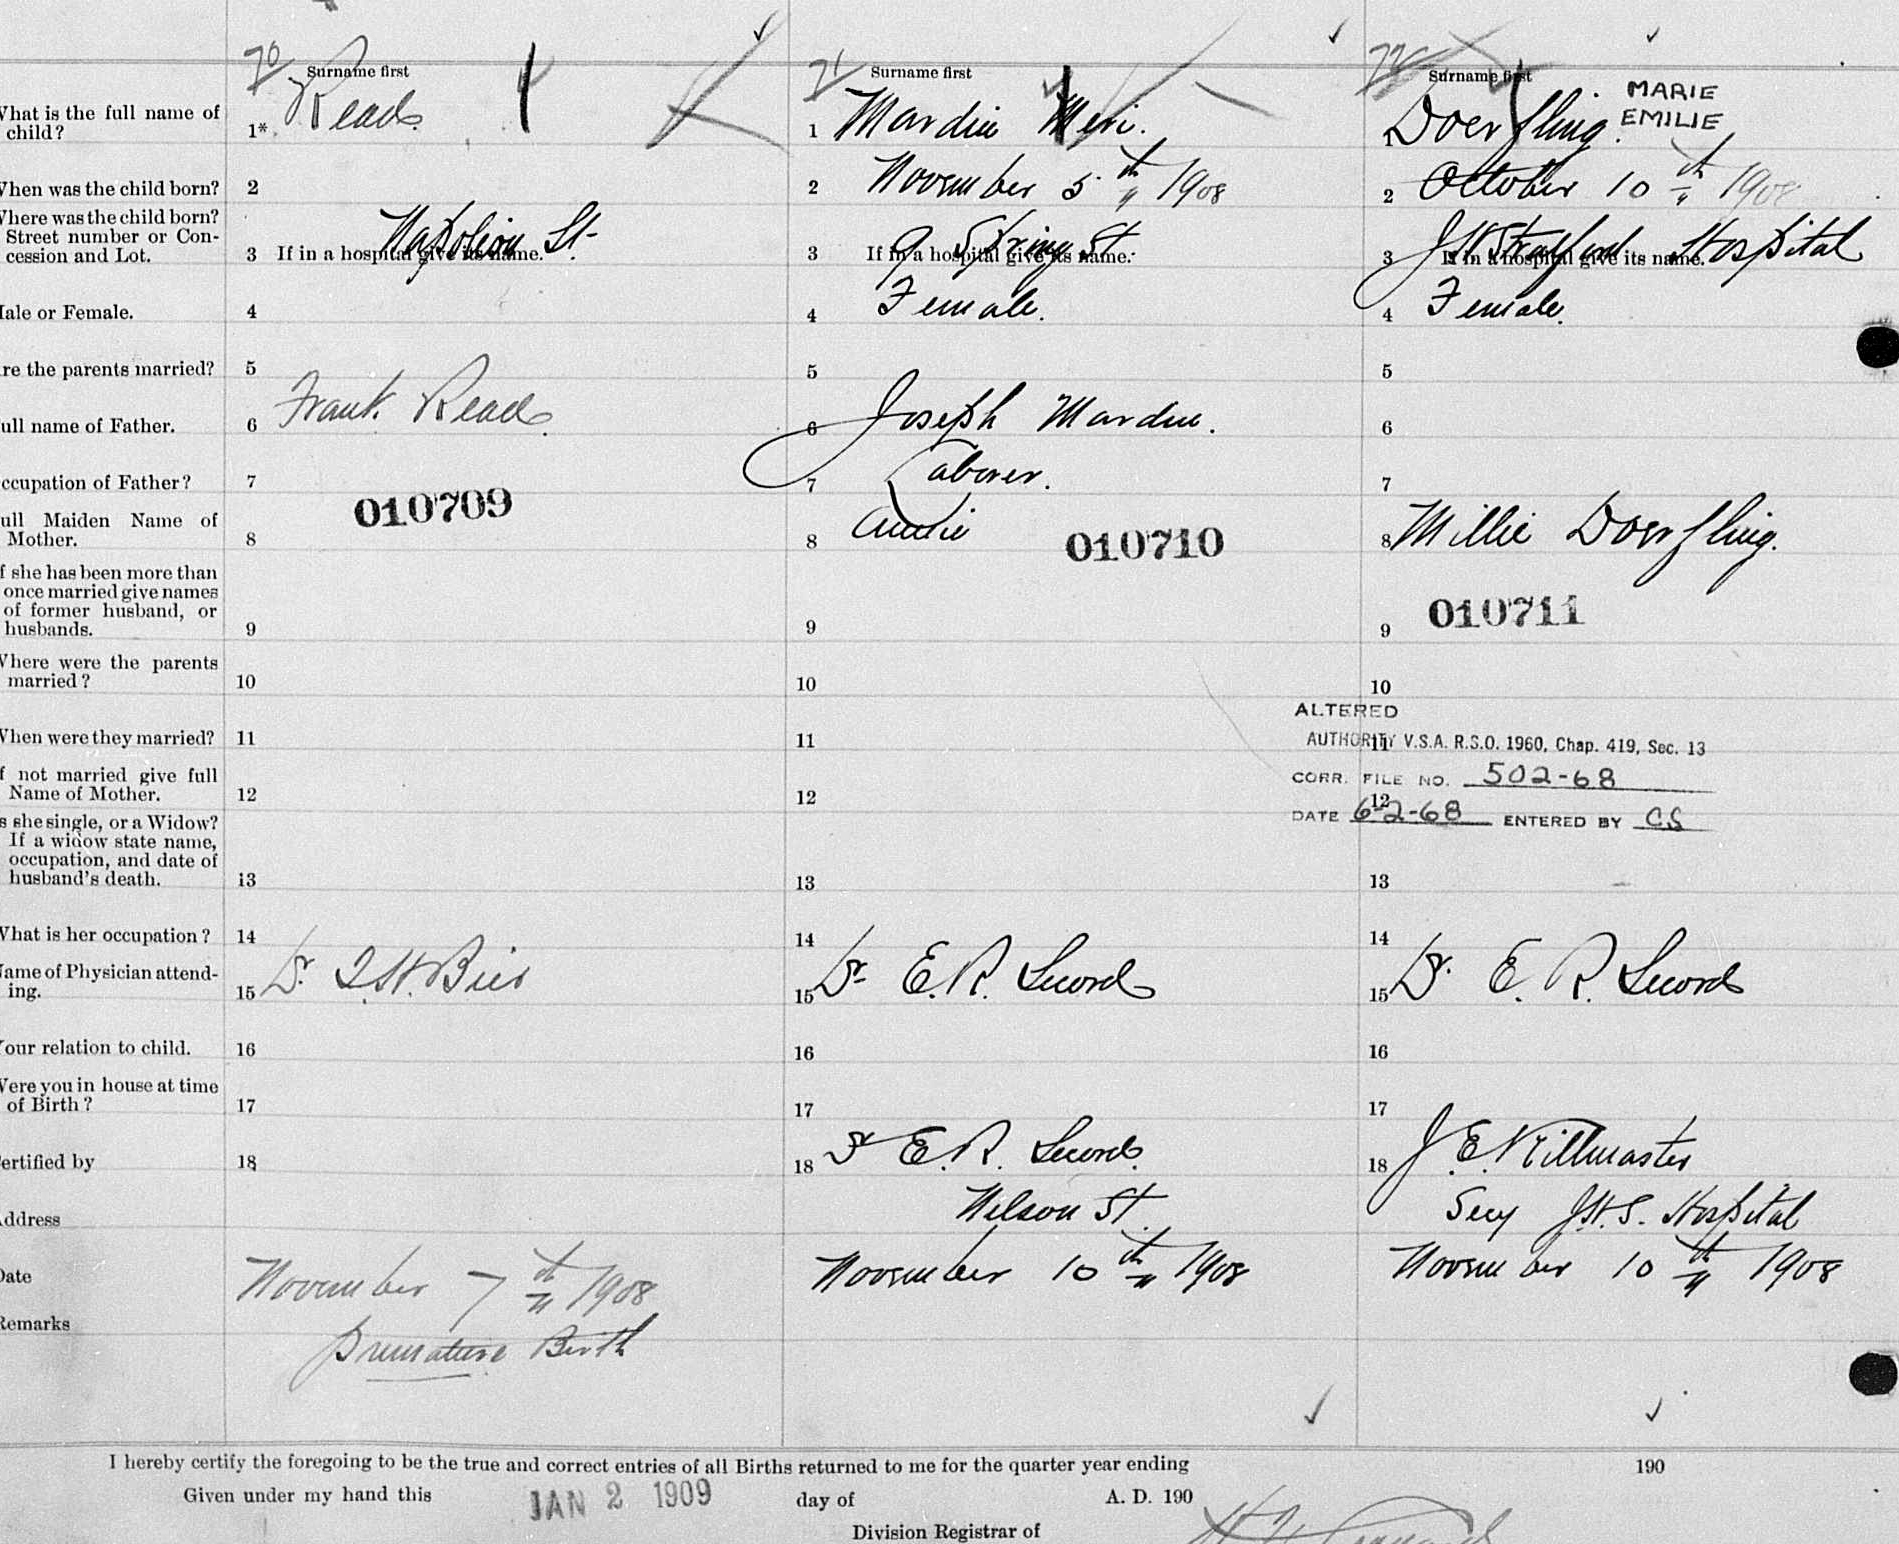 70 Surname first
71 Surname first
72 Surname first
What is the full name of child?
1* Read
1 Mardin Meri.
1 Doerfling. MARIE EMILIE
When was the child born?
2
2 November 5th 1908
2 October 10th 1908
Where was the child born? Street number or Concession and Lot.
3 If in a hospital give its name. Napoleon St.
3 If in a hospital give its name. 9 Spring St.
3 If in a hospital give its name. J H Stratford Hospital
Male or Female.
4
4 Female.
4 Female.
Are the parents married?
5
5
5
Full name of Father.
6 Frank Read
6 Joseph Mardin.
6
Occupation of Father?
7
7 Laborer.
7
010709
Full Maiden Name of Mother.
8
8 010710
8 Millie Doerfling.
If she has been more than once married give names of former husband, or husbands.
9
9
9 010711
Where were the parents married?
10
10
10
ALTERED
AUTHORITY V.S.A. R.S.O. 1960, Chap. 419, Sec. 13
When were they married?
11
11
11
CORR. FILE NO. 502-68
If not married give full Name of Mother.
12
12
12
DATE 6-2-68 ENTERED BY CS
Is she single, or a Widow? If a widow state name, occupation, and date of husband's death.
13
13
13
What is her occupation?
14
14
14
Name of Physician attending.
15 Dr.
15 Dr. E. R. Secord
15 Dr. E. R. Secord
Your relation to child.
16
16
16
Were you in house at time of Birth?
17
17
17
Certified by
18
18 Dr E. R. Secord.
18 J. E. Killmaster
Address
Nelson St.
Secy J.H.S. Hospital
Date
November 7th 1908
November 10th 1908
November 10th 1908
Remarks
Premature Birth
I hereby certify the foregoing to be the true and correct entries of all Births returned to me for the quarter year ending 190
Given under my hand this JAN 2 1909 day of A. D. 190
Division Registrar of